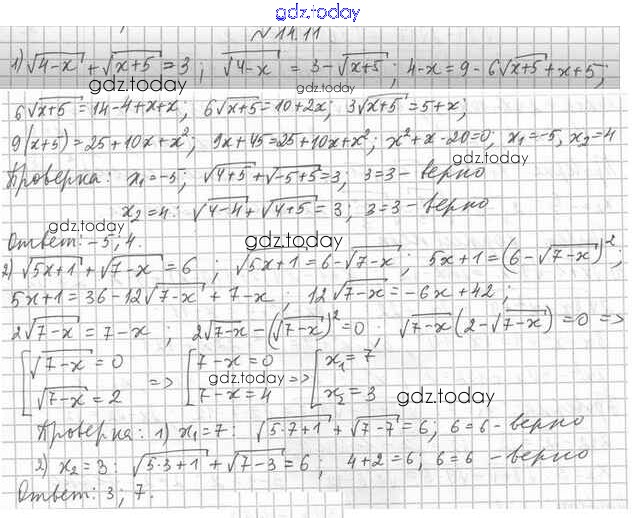 gdz.today
№ 14.11
1) √(4-x) + √(x+5) = 3; √(4-x) = 3 - √(x+5); 4-x = 9 - 6√(x+5) + x + 5;
gdz.today
gdz.today
6√(x+5) = 14-4+x+x; 6√(x+5) = 10+2x; 3√(x+5) = 5+x;
9(x+5) = 25+10x+x²; 9x+45 = 25+10x+x²; x²+x-20=0; x₁=-5, x₂=4
gdz.today
Проверка: x₁=-5; √(4+5) + √(-5+5) = 3; 3=3 - верно
x₂=4: √(4-4) + √(4+5) = 3; 3=3 - верно
gdz.today
Ответ: -5; 4.
gdz.today
2) √(5x+1) + √(7-x) = 6; √(5x+1) = 6 - √(7-x); 5x+1 = (6-√(7-x))²;
5x+1 = 36-12√(7-x) + 7-x; 12√(7-x) = -6x+42;
gdz.today
2√(7-x) = 7-x; 2√(7-x) - (√(7-x))² = 0; √(7-x)(2-√(7-x)) = 0 =>
[√(7-x) = 0 => [7-x = 0 => [x₁ = 7
gdz.today
√(7-x) = 2 7-x = 4 x₂ = 3
gdz.today
Проверка: 1) x₁=7: √(5·7+1) + √(7-7) = 6; 6=6 - верно
2) x₂=3: √(5·3+1) + √(7-3) = 6; 4+2=6; 6=6 - верно
Ответ: 3; 7.
gdz.today